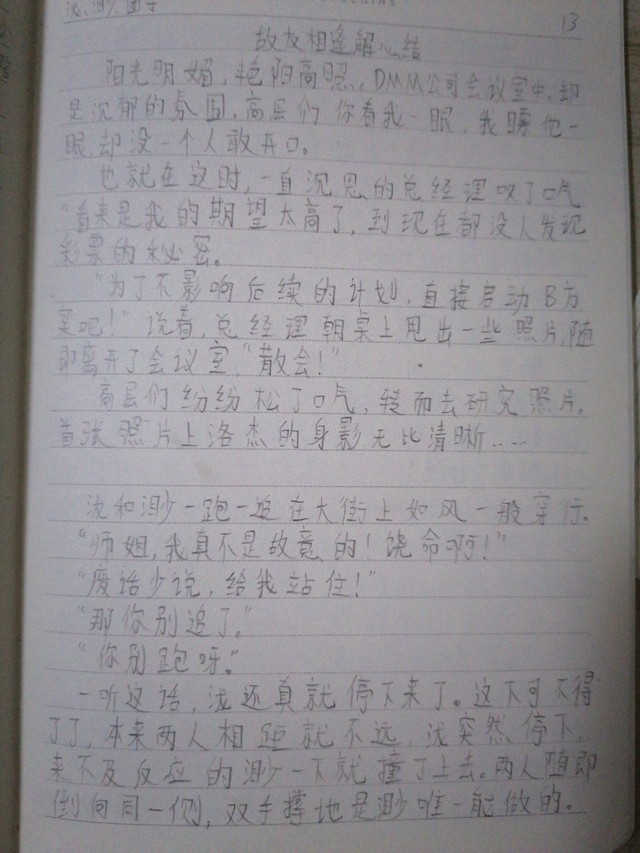 13
故友相逢解心结
阳光明媚，艳阳高照，DMM公司会议室中，却
是沉郁的氛围，高层们你看我一眼，我瞟他一
眼，却没一个人敢开口。
也就在这时，一直沉思的总经理叹了口气
“看来是我的期望太高了，到现在都没人发现
彩票的秘密。
“为了不影响后续的计划，直接启动B方
案吧！”说着，总经理朝桌上甩出一些照片，随
即离开了会议室，“散会！”
高层们纷纷松了口气，转而去研究照片，
首张照片上洛杰的身影无比清晰……
泷和渺一跑一追在大街上如风一般穿行。
“师姐，我真不是故意的！饶命啊！”
“废话少说，给我站住！”
“那你别追了。”
“你别跑呀。”
一听这话，泷还真就停下来了。这下可不得
了了，本来两人相距就不远，泷突然停下，
来不及反应的渺一下就撞了上去。两人随即
倒向同一侧，双手撑地是渺唯一能做的。